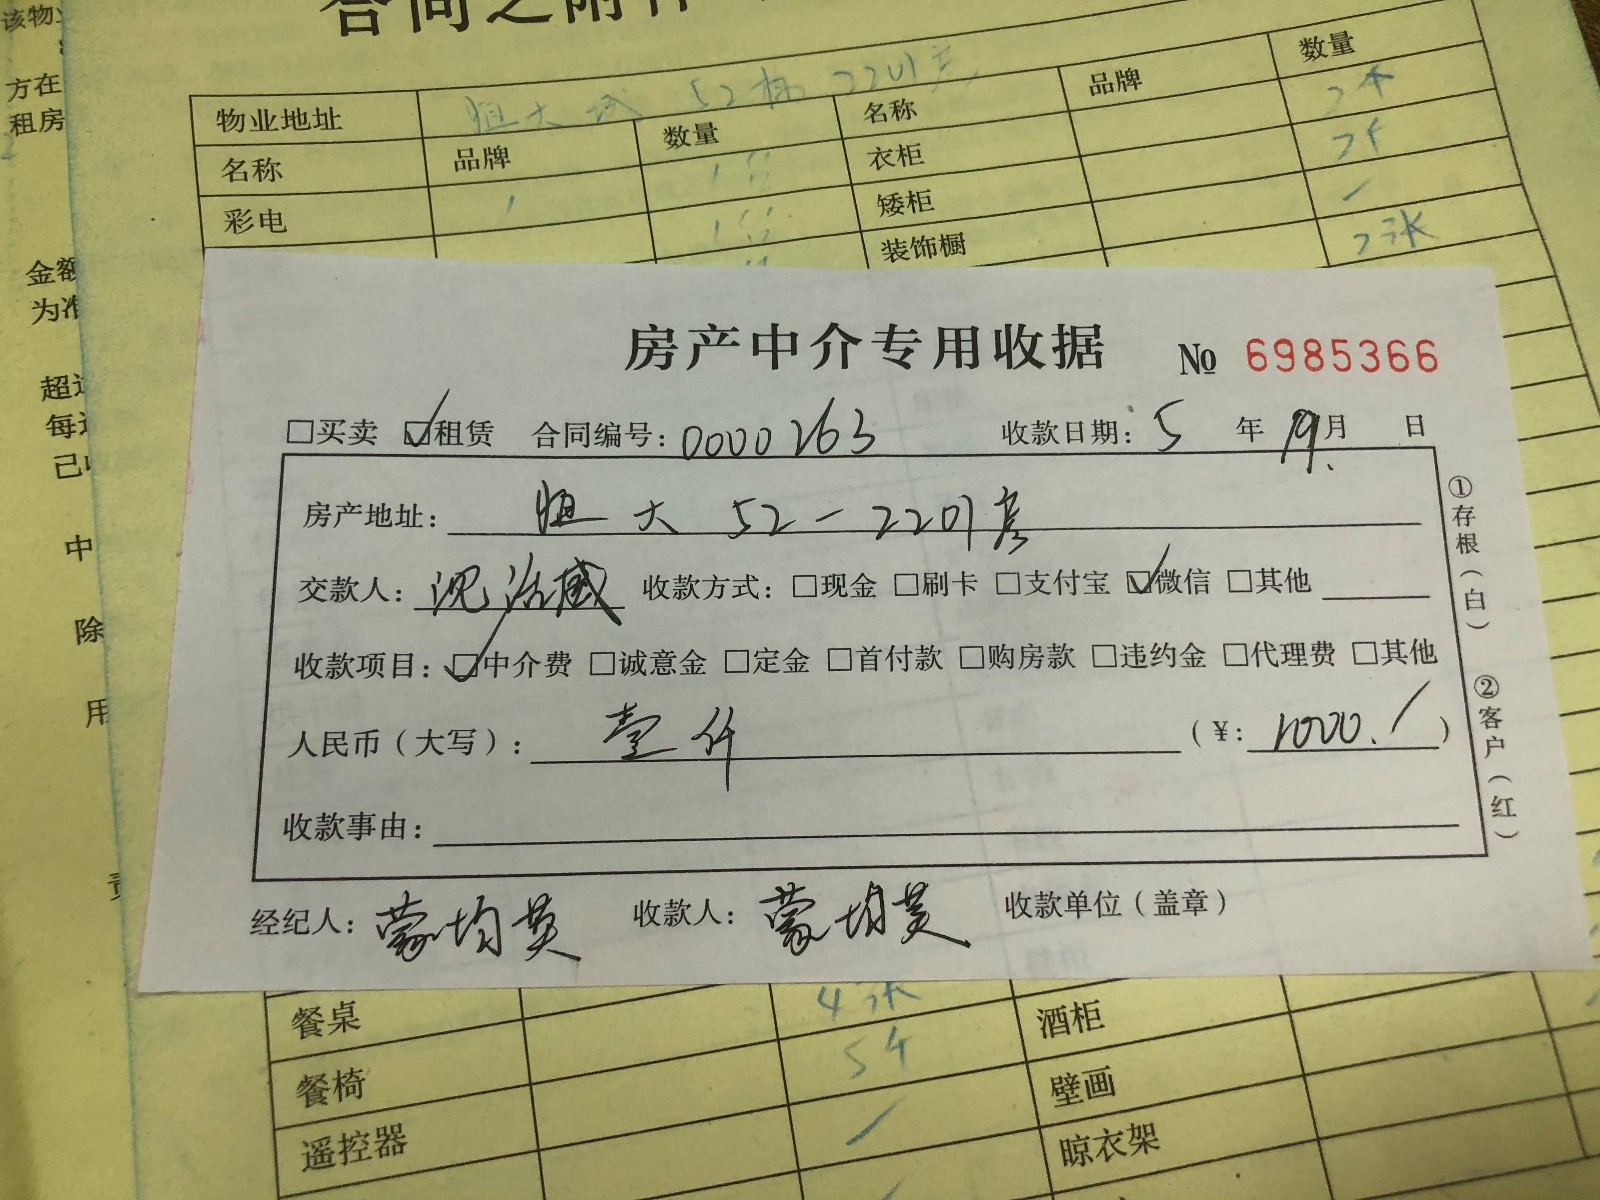 合同之附件
该物业
方在
租房
物业地址 恒大城 52栋 2201房
名称 品牌 数量 名称 品牌 数量
彩电 衣柜
矮柜
装饰橱 2张
金额
为准
超过
每
已
中
除
用
房产中介专用收据 № 6985366
□买卖 ☑租赁 合同编号: 0000263 收款日期: 5 年 19 月 日
房产地址: 恒大 52-2201房
交款人: 沈治威 收款方式: □现金 □刷卡 □支付宝 ☑微信 □其他
收款项目: ☑中介费 □诚意金 □定金 □首付款 □购房款 □违约金 □代理费 □其他
人民币(大写): 壹仟 (¥: 1000./)
收款事由:
经纪人: 蒙均英 收款人: 蒙均英 收款单位(盖章)
①存根(白) ②客户(红)
餐桌 4张 酒柜
餐椅 5个 壁画
遥控器 晾衣架